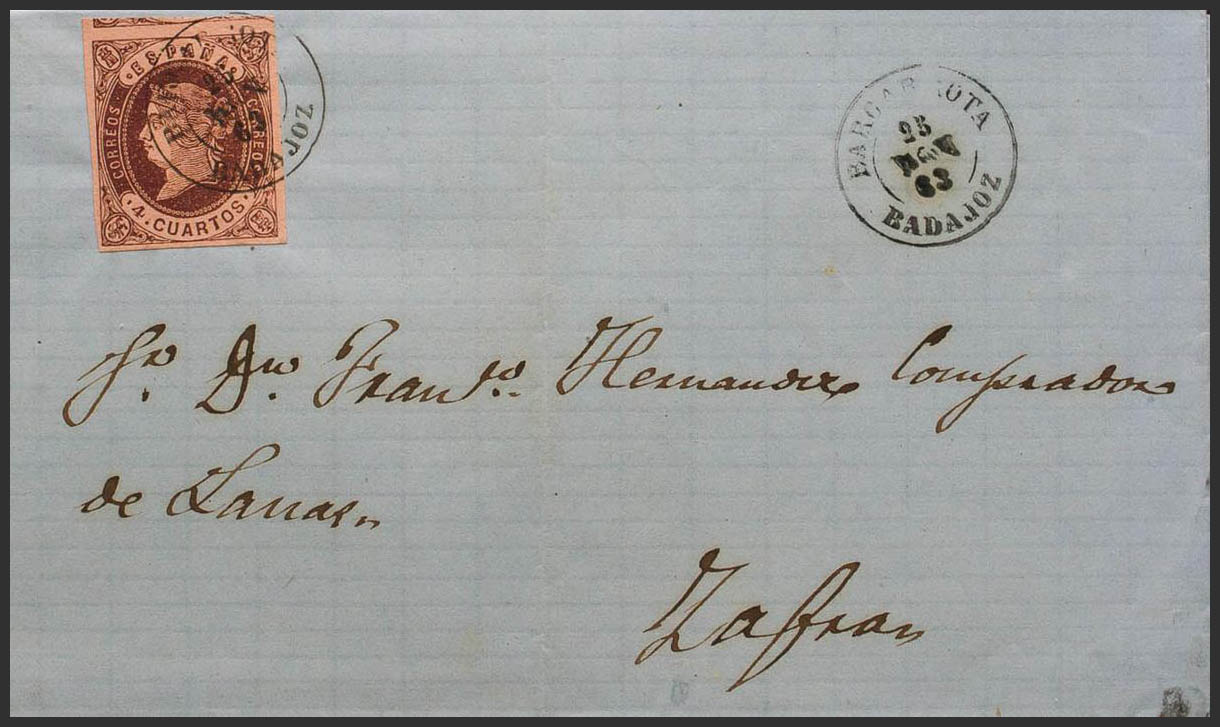 ESPAÑA
CORREOS
CORREOS
4. CUARTOS
BADAJOZ
BARCARROTA
25
NOV
63
BADAJOZ
Sr. Dn. Franco. Hernandez Comprador
de Lanas
Zafra